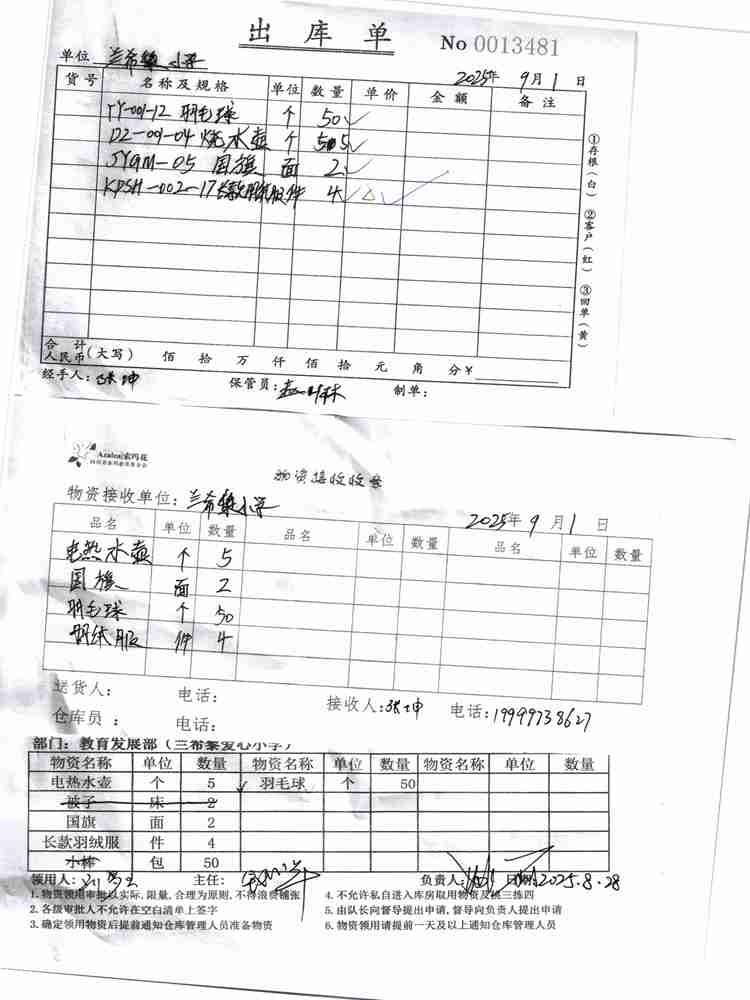 出库单 No 0013481
单位 兰希黎小学 2025年 9月 1 日
货号 名称及规格 单位 数量 单价 金额 备注
YY-001-12 羽毛球 个 50
DZ-001-04 烧水壶 个 5
JYGM-05 国旗 面 2
KPSH-002-17 长款羽绒服 件 4
①存根(白) ②客户(红) ③回单(黄)
合计人民币(大写) 佰 拾 万 仟 佰 拾 元 角 分¥
经手人: 张坤 保管员: 制单:
Azalea 索玛花
物资接收收条
物资接收单位: 兰希黎小学 2025年 9月 1 日
品名 单位 数量 品名 单位 数量 品名 单位 数量
电热水壶 个 5
国旗 面 2
羽毛球 个 50
羽绒服 件 4
送货人: 电话: 接收人: 张坤 电话: 19999738627
仓库员: 电话:
部门: 教育发展部 (三希黎爱心小学)
物资名称 单位 数量 物资名称 单位 数量 物资名称 单位 数量
电热水壶 个 5 羽毛球 个 50
被子 床 2
国旗 面 2
长款羽绒服 件 4
小棒 包 50
领用人: 主任: 负责人: 日期: 2025.8.28
1.物资领用审批以实际,限量,合理为原则,不得浪费铺张 4.不允许私自进入库房取用物资及挑三拣四
2.各级审批人不允许在空白清单上签字 5.由队长向督导提出申请,督导向负责人提出申请
3.确定领用物资后提前通知仓库管理人员准备物资 6.物资领用请提前一天及以上通知仓库管理人员